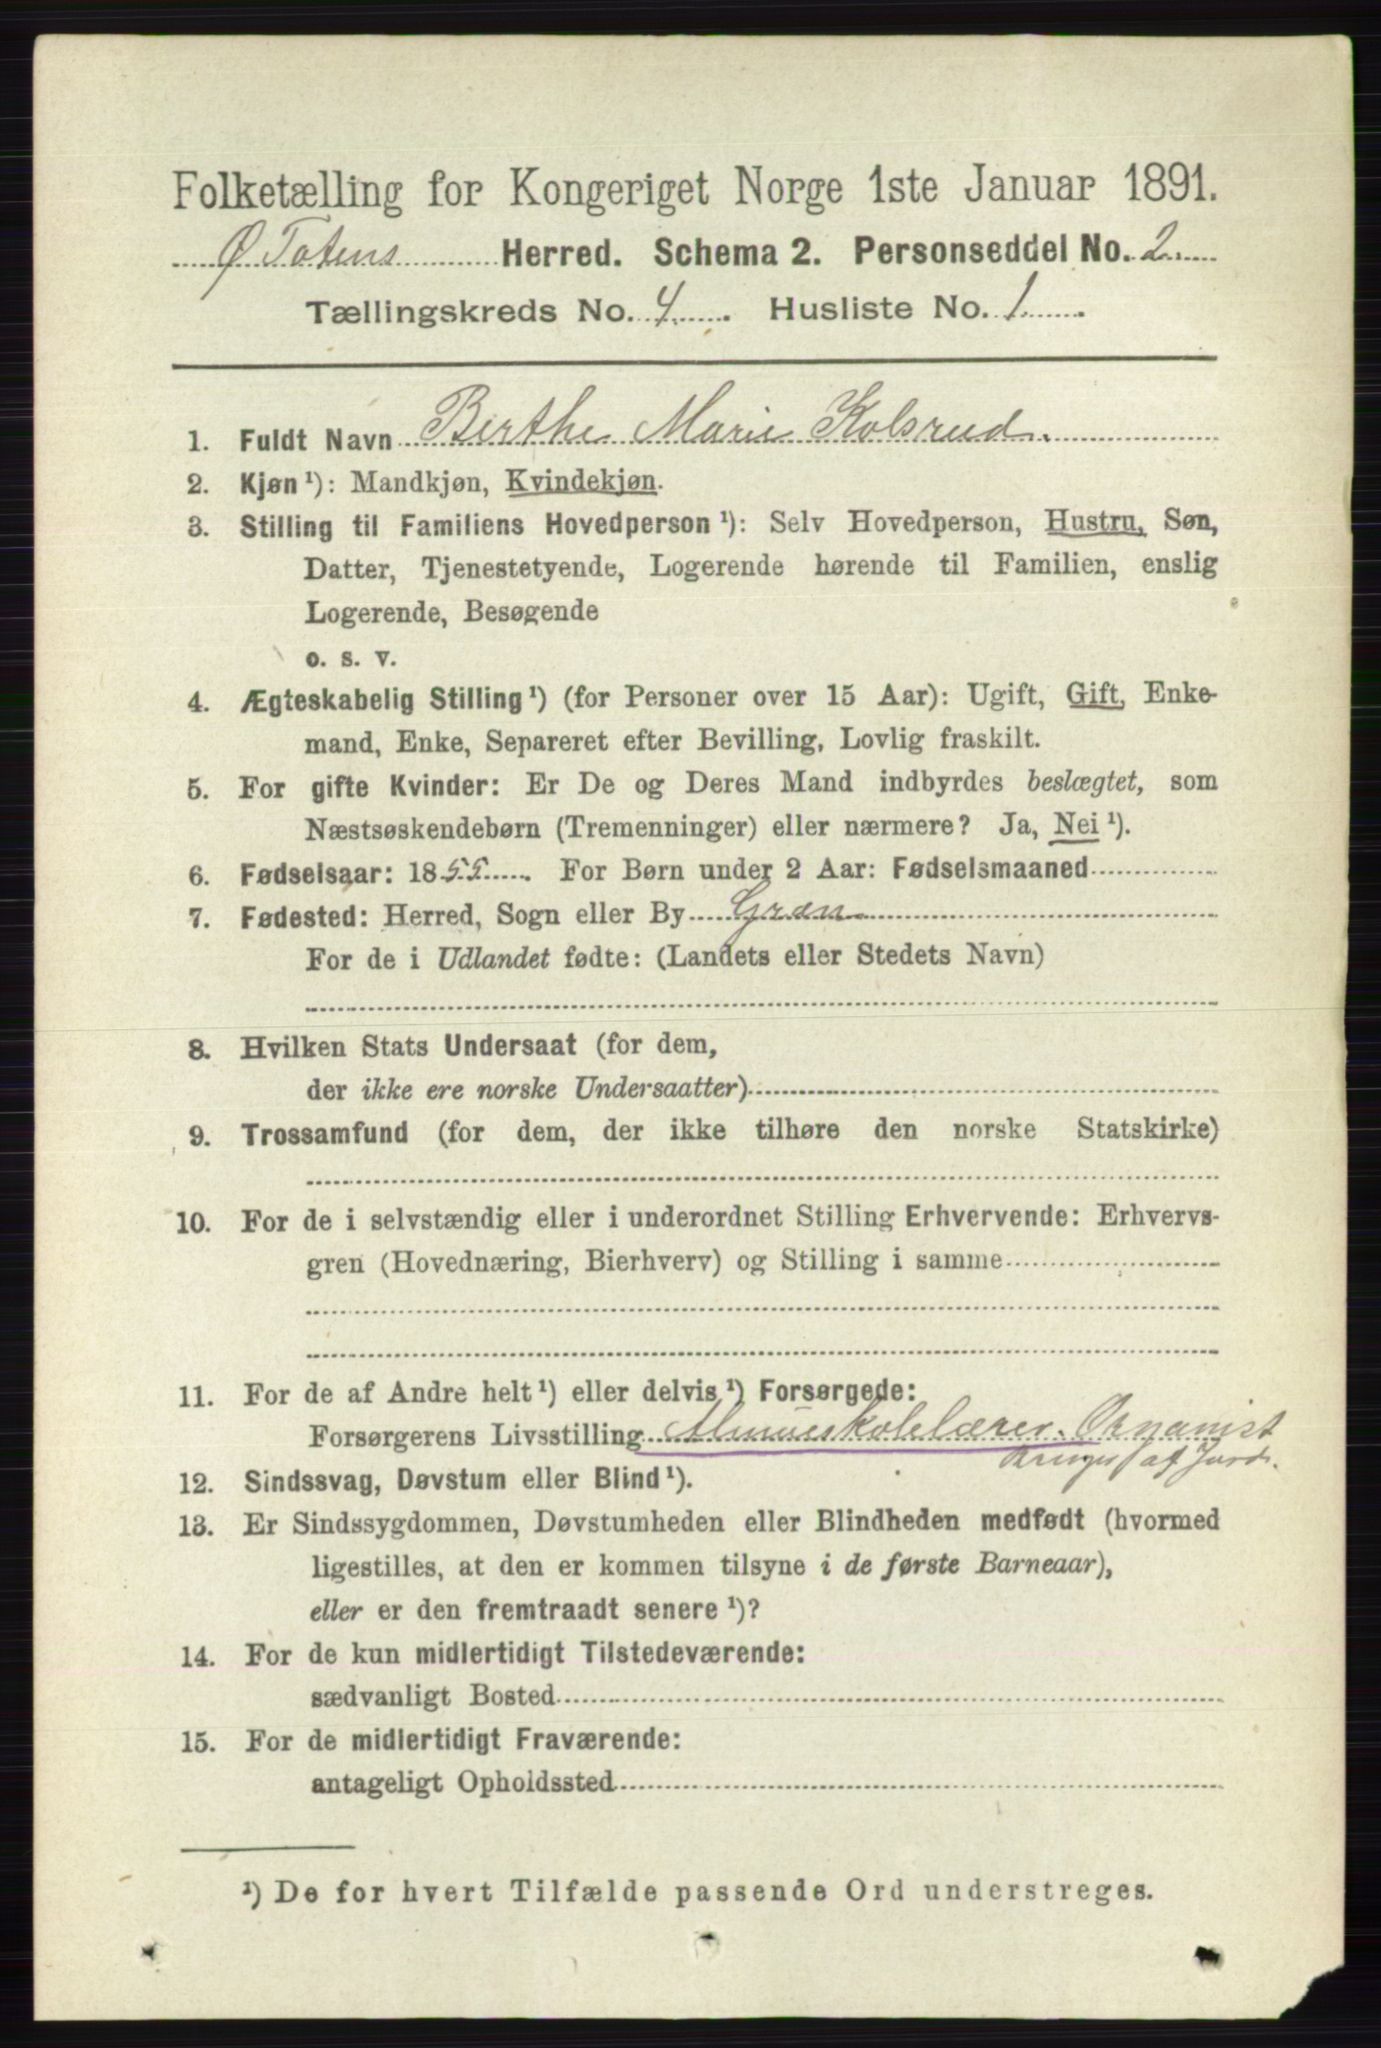 Folketælling for Kongeriget Norge 1ste Januar 1891.
Ø Totens Herred. Schema 2. Personseddel No. 2
Tællingskreds No. 4. Husliste No. 1.
1. Fuldt Navn Berthe Marie Kolsrud.
2. Kjøn ¹): Mandkjøn, Kvindekjøn.
3. Stilling til Familiens Hovedperson ¹): Selv Hovedperson, Hustru, Søn,
Datter, Tjenestetyende, Logerende hørende til Familien, enslig
Logerende, Besøgende
o. s. v.
4. Ægteskabelig Stilling ¹) (for Personer over 15 Aar): Ugift, Gift, Enke-
mand, Enke, Separeret efter Bevilling, Lovlig fraskilt.
5. For gifte Kvinder: Er De og Deres Mand indbyrdes beslægtet, som
Næstsøskendebørn (Tremenninger) eller nærmere? Ja, Nei ¹).
6. Fødselsaar: 1855. For Børn under 2 Aar: Fødselsmaaned
7. Fødested: Herred, Sogn eller By Gran
For de i Udlandet fødte: (Landets eller Stedets Navn)
8. Hvilken Stats Undersaat (for dem,
der ikke ere norske Undersaatter)
9. Trossamfund (for dem, der ikke tilhøre den norske Statskirke)
10. For de i selvstændig eller i underordnet Stilling Erhvervende: Erhvervs-
gren (Hovednæring, Bierhverv) og Stilling i samme
11. For de af Andre helt ¹) eller delvis ¹) Forsørgede:
Forsørgerens Livsstilling Almueskolelærer. Organist
Bruger af Jord.
12. Sindssvag, Døvstum eller Blind ¹).
13. Er Sindssygdommen, Døvstumheden eller Blindheden medfødt (hvormed
ligestilles, at den er kommen tilsyne i de første Barneaar),
eller er den fremtraadt senere ¹)?
14. For de kun midlertidigt Tilstedeværende:
sædvanligt Bosted
15. For de midlertidigt Fraværende:
antageligt Opholdssted
¹) De for hvert Tilfælde passende Ord understreges.